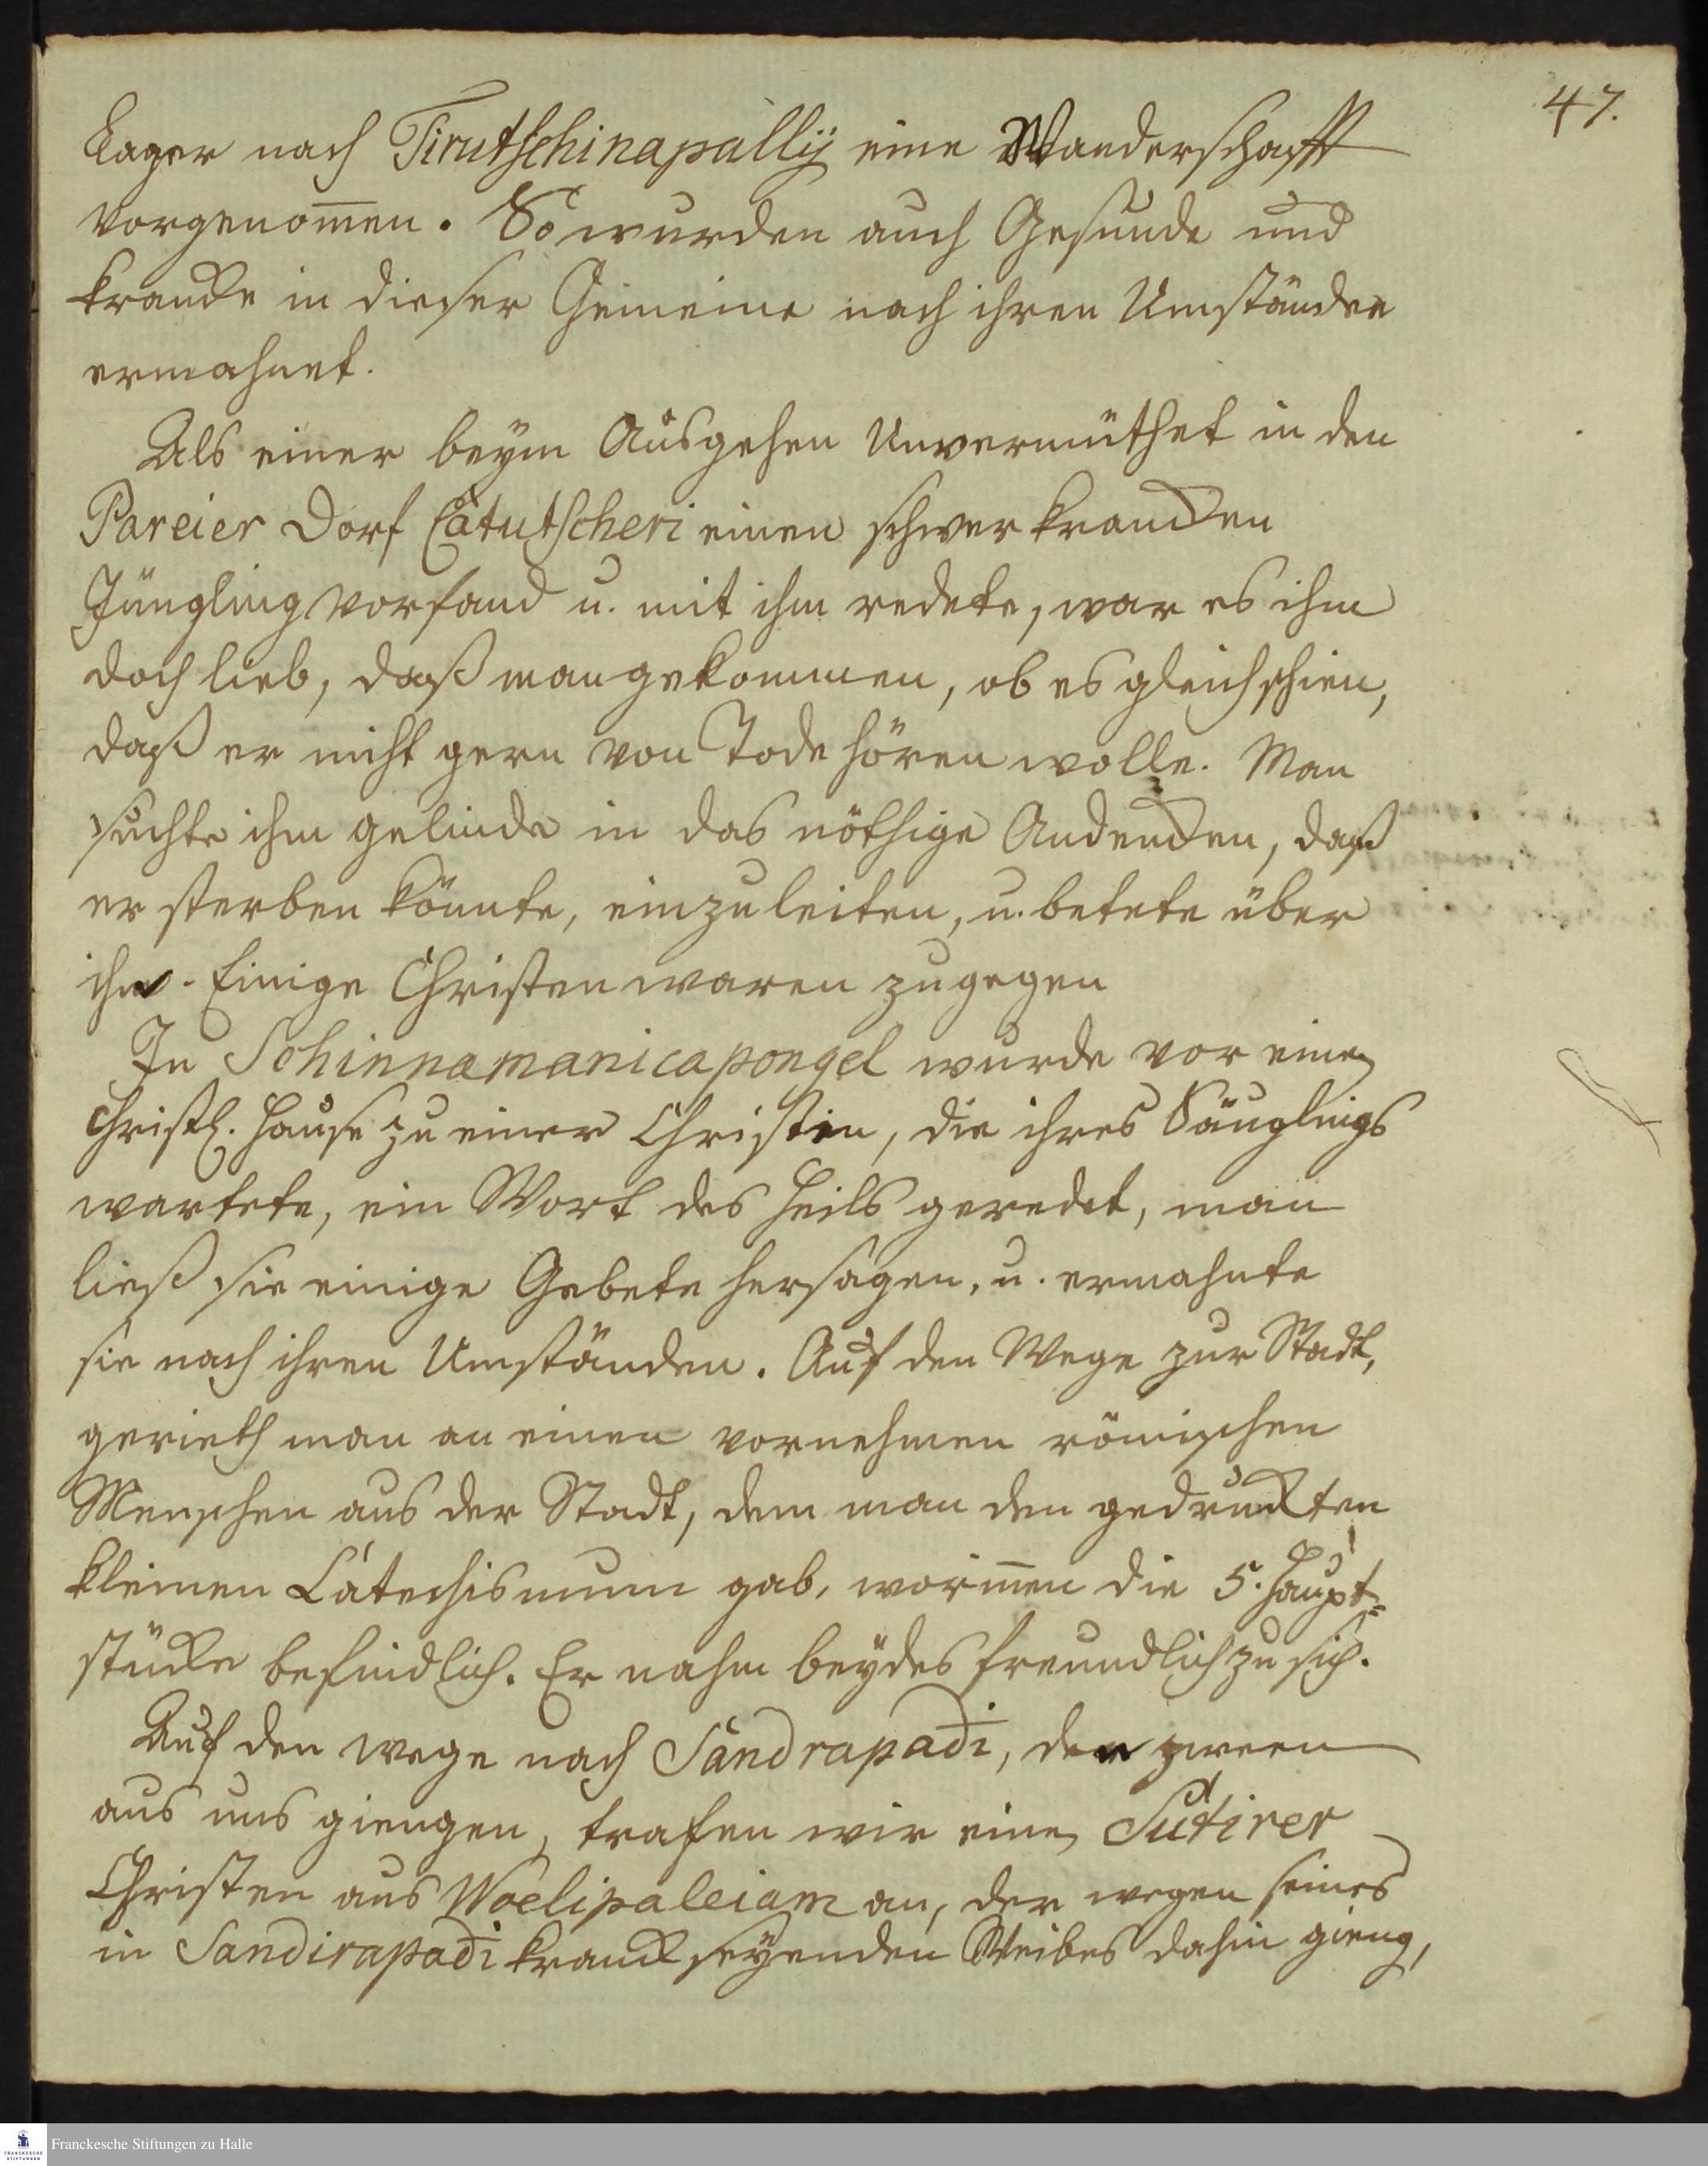 47.
Lager nach Tirutschinapally eine Wanderschafft
vorgenom̅en. So wurden auch Gesunde und
krancke in dieser Gemeine nach ihren Umständen
ermahnet.
Als einer beym Ausgehen Unvermuthet in den
Pareier Dorf Catutscheri einen schwer krancken
Jüngling vorfand u. mit ihm redete, war es ihm
doch lieb, daß man gekommen, ob es gleich schien,
daß er nicht gern von Tode hören wolle. Man
suchte ihm gelinde in das nöthige Andencken, daß
er sterben könnte, einzuleiten, u. betete über
ihn. Einige Christen waren zugegen
In Schinnamanicapongel wurde vor einen
Christl. Hause zu einer Christin, die ihres Säuglings
wartete, ein Wort des Heils geredet, man
ließ sie einige Gebete hersagen, u. ermahnte
sie nach ihren Umständen. Auf den Wege zur Stadt,
gerieth man an einen vornehmen römischen
Menschen aus der Stadt, dem man den gedruckten
kleinen Catechismum gab, worin̅en die 5. Haupt=
stücke befindlich. Er nahm beydes freundlich zu sich.
Auf den wege nach Sandrapadi, den zween
aus uns giengen, trafen wir einen Sutirer
Christen aus Woelipaleiam an, der wegen seines
in Sandirapadi kranck seyenden Weibes dahin gieng,
Franckesche Stiftungen zu Halle